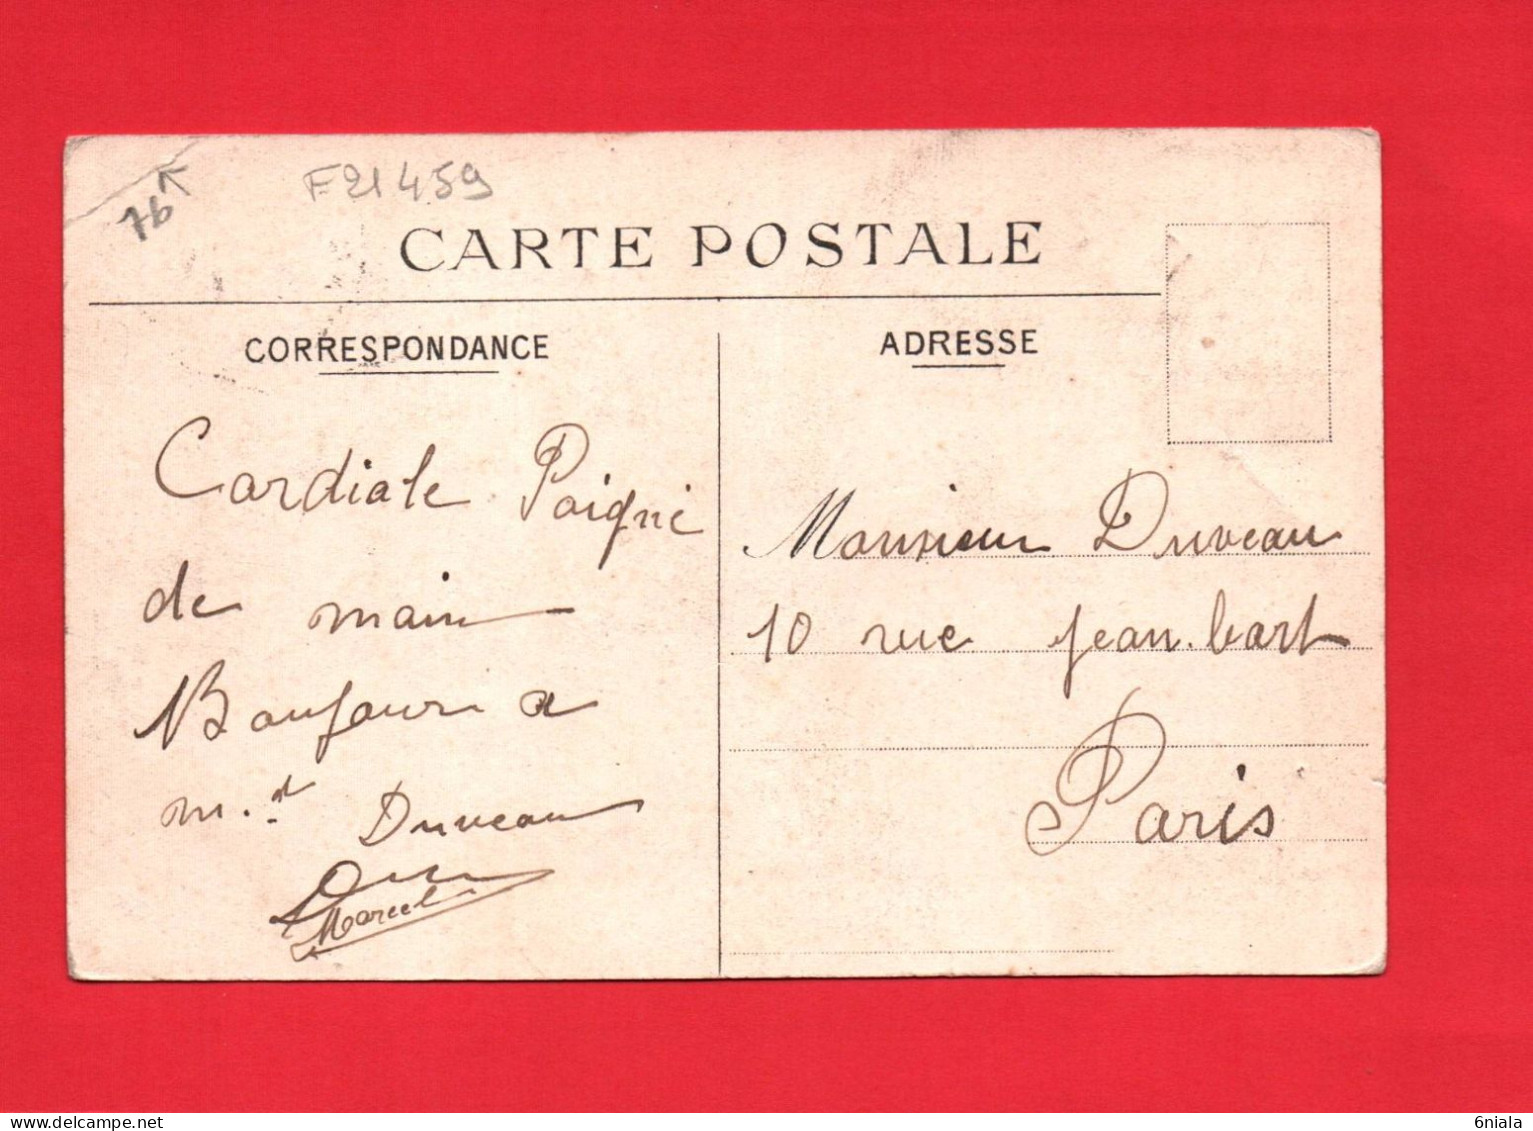 76
F21459
CARTE POSTALE
CORRESPONDANCE
ADRESSE
Cordiale Poigné
de main
Bonjour a
Duveau
Marcel
Monsieur Duveau
10 rue jean.bart
Paris
www.delcampe.net
6niala